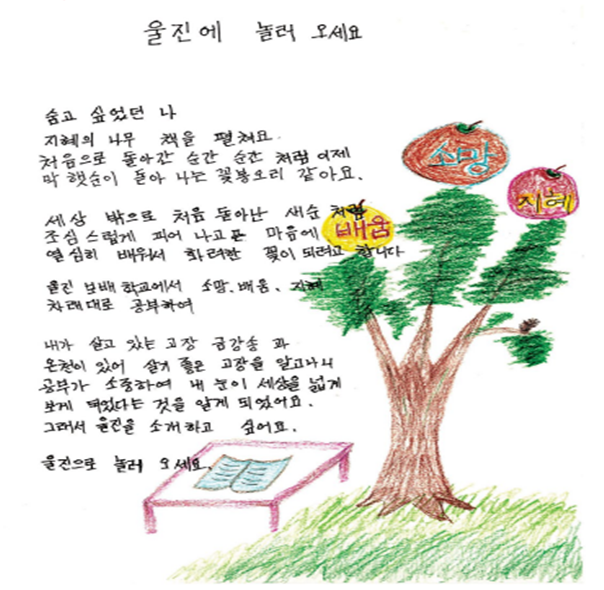 울진에 놀러 오세요
숨고 싶었던 나
지혜의 나무 책을 펼쳐요.
처음으로 돌아간 순간 순간 처럼 이제
막 햇순이 돋아 나는 꽃봉오리 같아요.
세상 밖으로 처음 돋아난 새순 처럼
조심스럽게 피어 나고픈 마음에
열심히 배워서 화려한 꽃이 되려고 합니다
울진 보배학교에서 소망. 배움. 지혜
차례대로 공부하여
내가 살고 있는 고장 금강송 과
온천이 있어 살기 좋은 고장을 알고나니
공부가 소중하여 내 눈이 세상을 넓게
보게 되었다는 것을 알게 되었어요.
그래서 울진을 소개하고 싶어요.
울진으로 놀러 오세요.
소망
지혜
배움